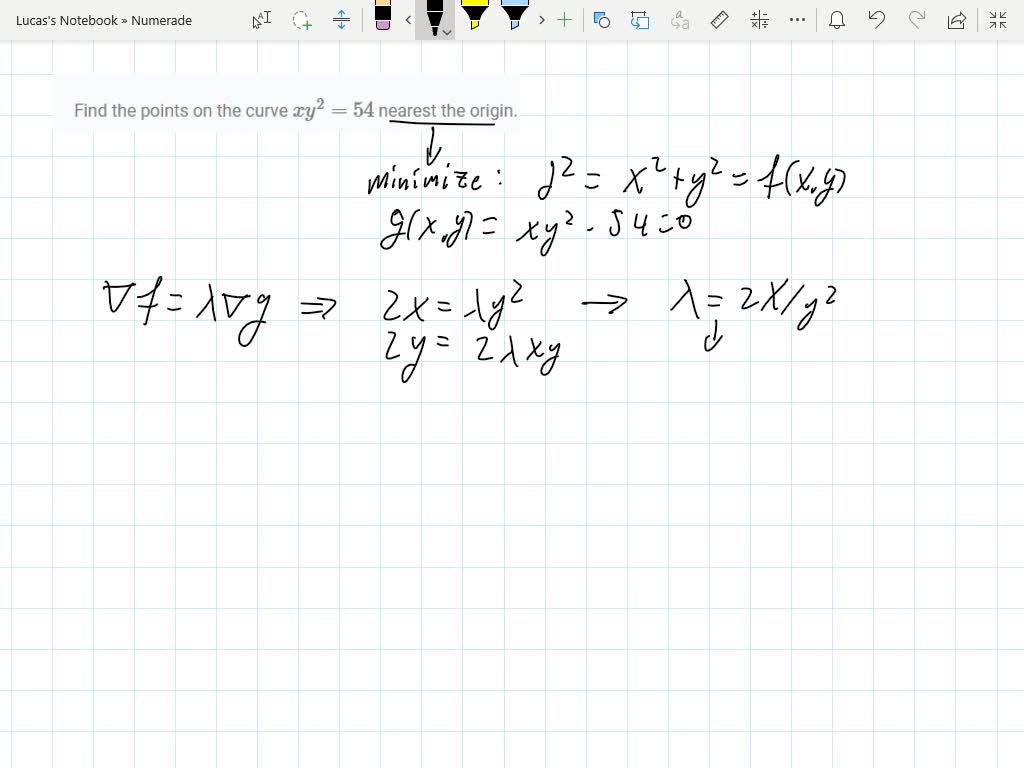 Lucas's Notebook » Numerade
Find the points on the curve xy² = 54 nearest the origin.
minimize: d² = x² + y² = f(x,y)
g(x,y) = xy² - 54 = 0
∇f = λ∇g ⇒ 2x = λy² → λ = 2x/y²
2y = 2λxy